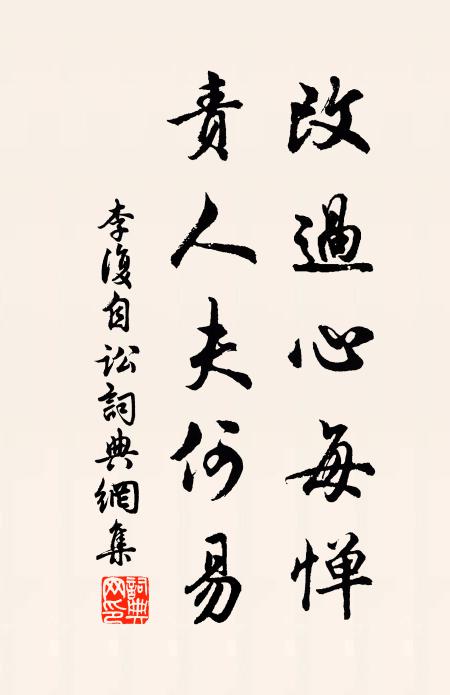 改過心每惮
責人夫何易
李復自訟詞典網集
詞典网印